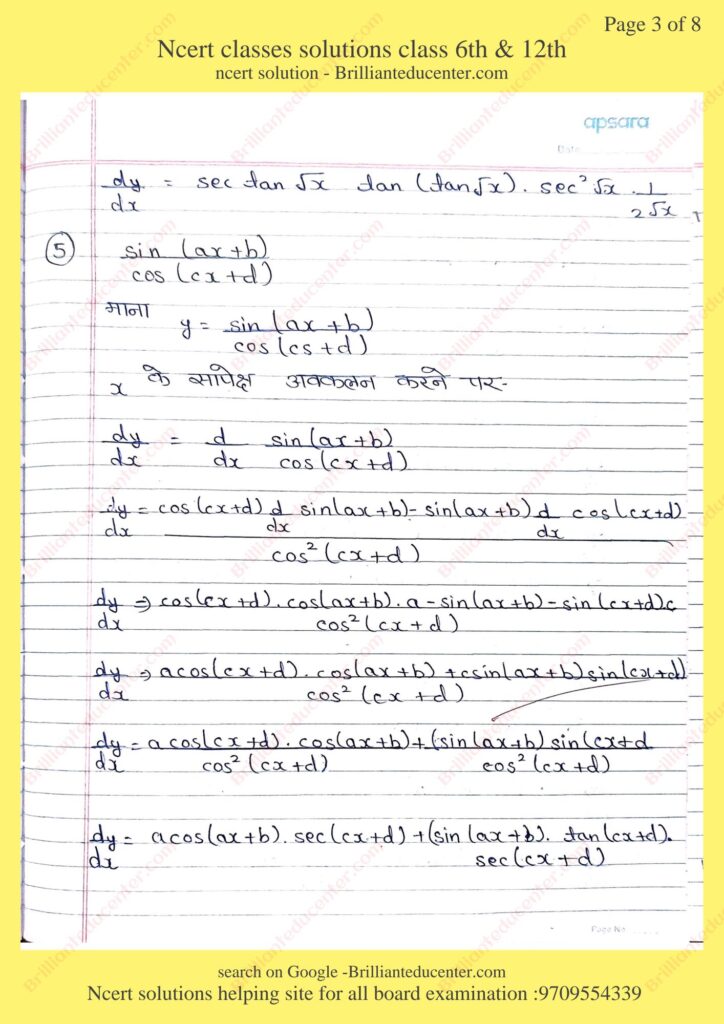 Page 3 of 8
Ncert classes solutions class 6th & 12th
ncert solution - Brillianteducenter.com
apsara
Date
dy/dx = sec tan √x tan (tan√x). sec² √x . 1/2√x
5 sin (ax+b)/cos (cx+d)
माना y = sin(ax+b)/cos(cs+d)
x के सापेक्ष अवकलन करने पर-
dy/dx = d/dx sin(ax+b)/cos(cx+d)
dy/dx = cos(cx+d) d/dx sin(ax+b) - sin(ax+b) d/dx cos(cx+d)/cos² (cx+d)
dy/dx => cos(cx+d). cos(ax+b). a - sin(ax+b) - sin(cx+d)c/cos² (cx+d)
dy/dx => acos(cx+d). cos(ax+b) + csin(ax+b) sin(cx+d)/cos² (cx+d)
dy/dx = a cos(cx+d). cos(ax+b)/cos² (cx+d) + (sin(ax+b) sin(cx+d/cos² (cx+d)
dy/dx = a cos(ax+b). sec(cx+d) + (sin(ax+b). tan(cx+d).
sec(cx+d)
Page No
search on Google -Brillianteducenter.com
Ncert solutions helping site for all board examination :9709554339
Brillianteducenter.com